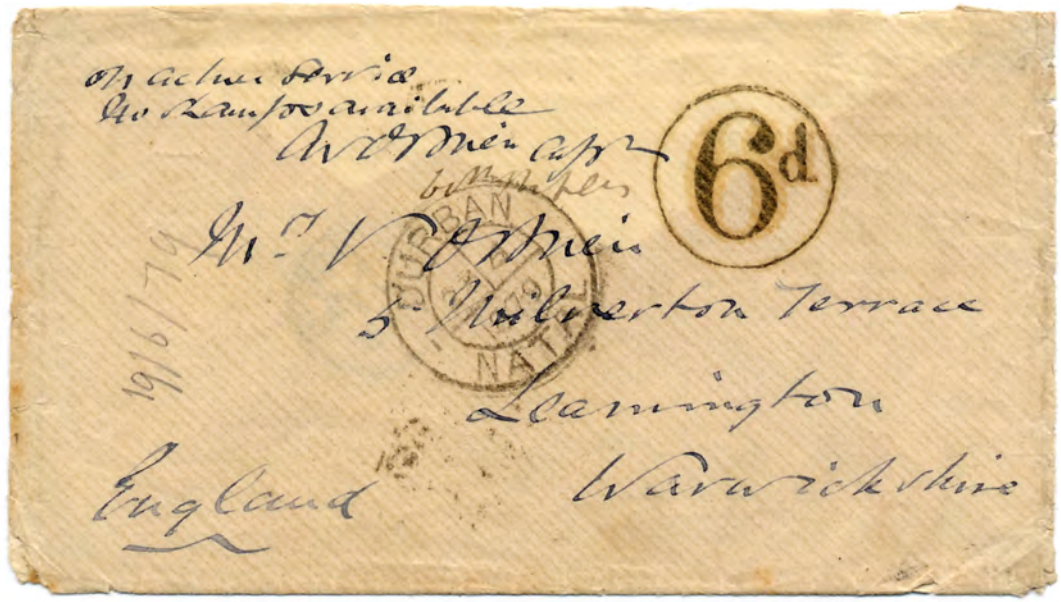 on active service
No stamps available
Capt
6d
DURBAN
NATAL
79
Mrs V. O'Brien
5 Milverton Terrace
Leamington
Warwickshire
England
19/6/79